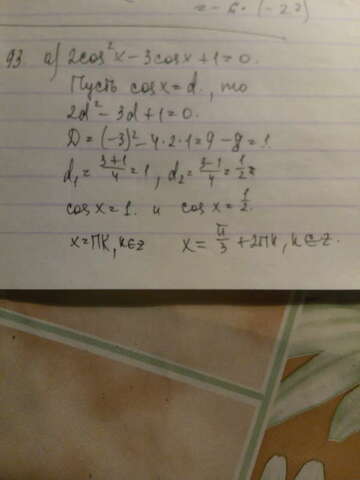 = -6 · (-2²)
93 а) 2cos²x - 3cosx + 1 = 0.
Пусть cosx = d, то
2d² - 3d + 1 = 0.
D = (-3)² - 4·2·1 = 9 - 8 = 1.
d₁ = 3+1/4 = 1, d₂ = 3-1/4 = 1/2
cosx = 1. и cosx = 1/2.
x = πк, к∈z x = π/3 + 2πк, к∈z.